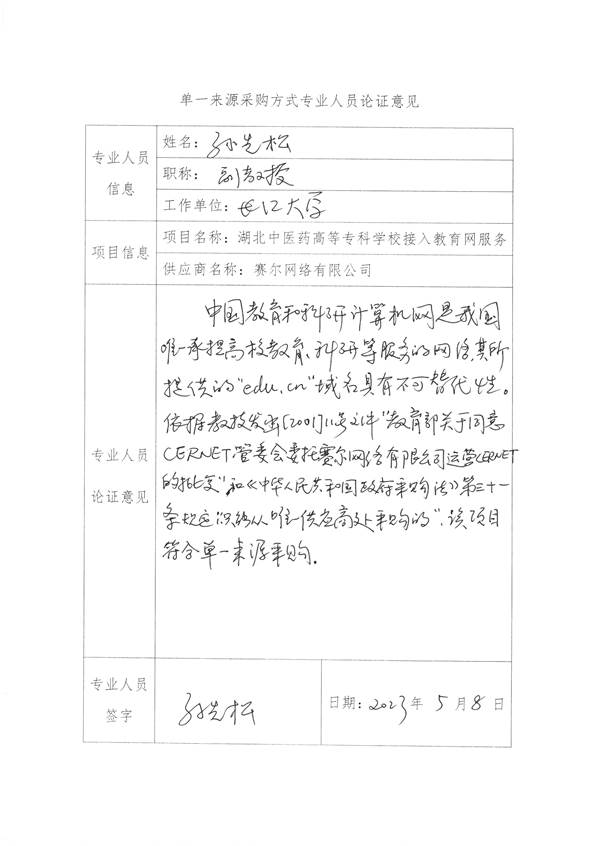 单一来源采购方式专业人员论证意见
专业人员
信息
姓名：孙先松
职称：副教授
工作单位：长江大学
项目信息
项目名称：湖北中医药高等专科学校接入教育网服务
供应商名称：赛尔网络有限公司
专业人员
论证意见
中国教育和科研计算机网是我国
唯一承担高校教育、科研等服务的网络，其所
提供的"edu.cn"域名具有不可替代性。
依据教技发函[2001]11号文件"教育部关于同意
CERNET管委会委托赛尔网络有限公司运营CERNET
的批复"和《中华人民共和国政府采购法》第三十一
条规定"只能从唯一供应商处采购的"，该项目
符合单一来源采购。
专业人员
签字
孙先松
日期：2023年 5月 8日